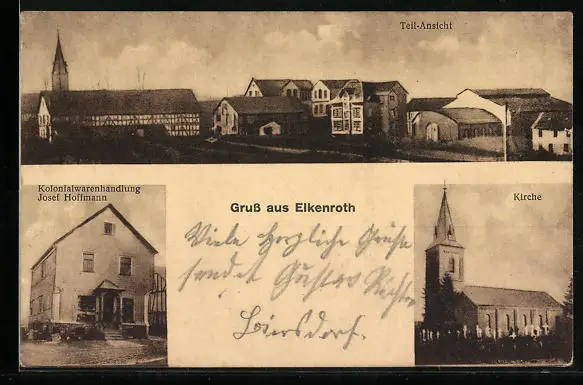 Teil-Ansicht
Kolonialwarenhandlung
Josef Hoffmann
Kirche
Gruß aus Elkenroth
Viele herzliche Grüße
sendet Gustav Richter